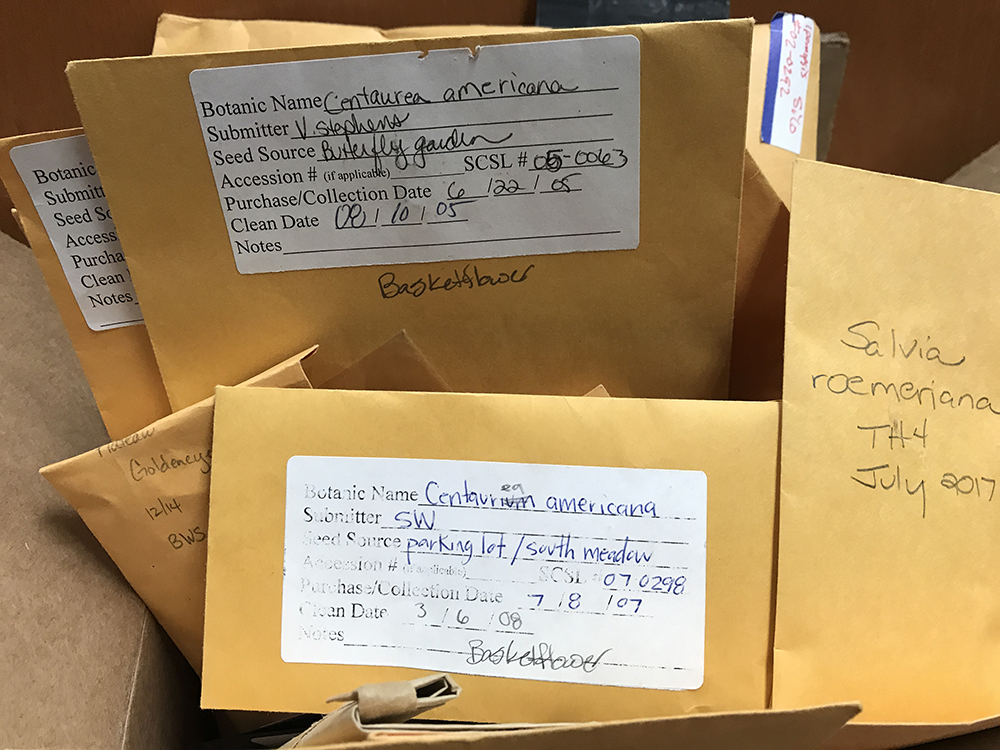 Botanic Name Centaurea americana
Submitter V. Stephens
Seed Source Butterfly garden
Accession # (if applicable) SCSL # 05-0063
Purchase/Collection Date 6 / 22 / 05
Clean Date 08 / 10 / 05
Notes
Basketflower
Botanic
Submitt
Seed So
Access
Purcha
Clean
Notes
Goldeneye
12/14
BWS
Botanic Name Centaurea americana
Submitter SW
Seed Source parking lot / south meadow
Accession # (if applicable) SCSL # 07 0298
Purchase/Collection Date 7 / 8 / 07
Clean Date 3 / 6 / 08
Notes
Basketflower
Salvia
roemeriana
TH4
July 2017